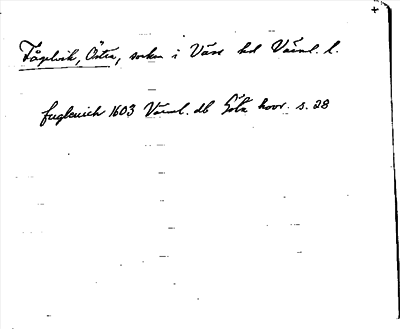 Fågelvik, Östra, socken i Väse hd Värml. l.
fuglewich 1603 Värml. db Göta hovr. s. 28